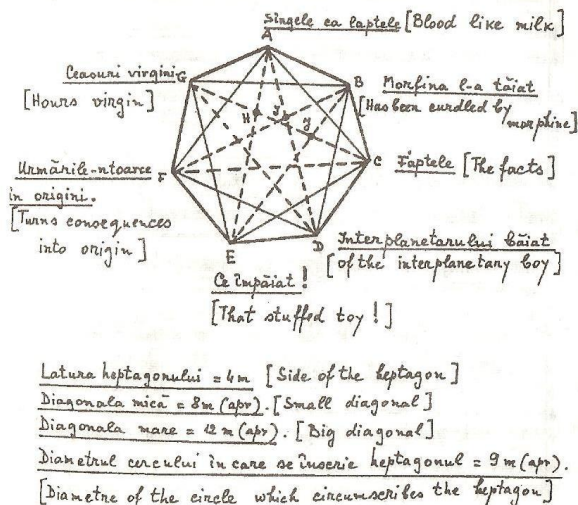 Sîngele ca laptele [Blood like milk]
A
Ceasuri virgini G
[Hours virgin]
B Morfina l-a tăiat
[Has been curdled by morphine]
H J y
Urmările-ntoarce F
în origini.
[Turns consequences
into origin]
C Faptele [The facts]
E D Interplanetarului băiat
[of the interplanetary boy]
Ce împăiat!
[That stuffed toy!]
Latura heptagonului = 4m [Side of the heptagon]
Diagonala mică = 8m (apr). [Small diagonal]
Diagonala mare = 12 m (apr). [Big diagonal]
Diametrul cercului în care se înscrie heptagonul = 9 m (apr).
[Diametre of the circle which circumscribes the heptagon]